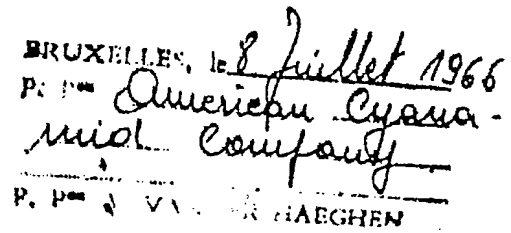 BRUXELLES, le 8 Juillet 1966
P. Pon American Cyana-
mid Company
P. Pon HAEGHEN